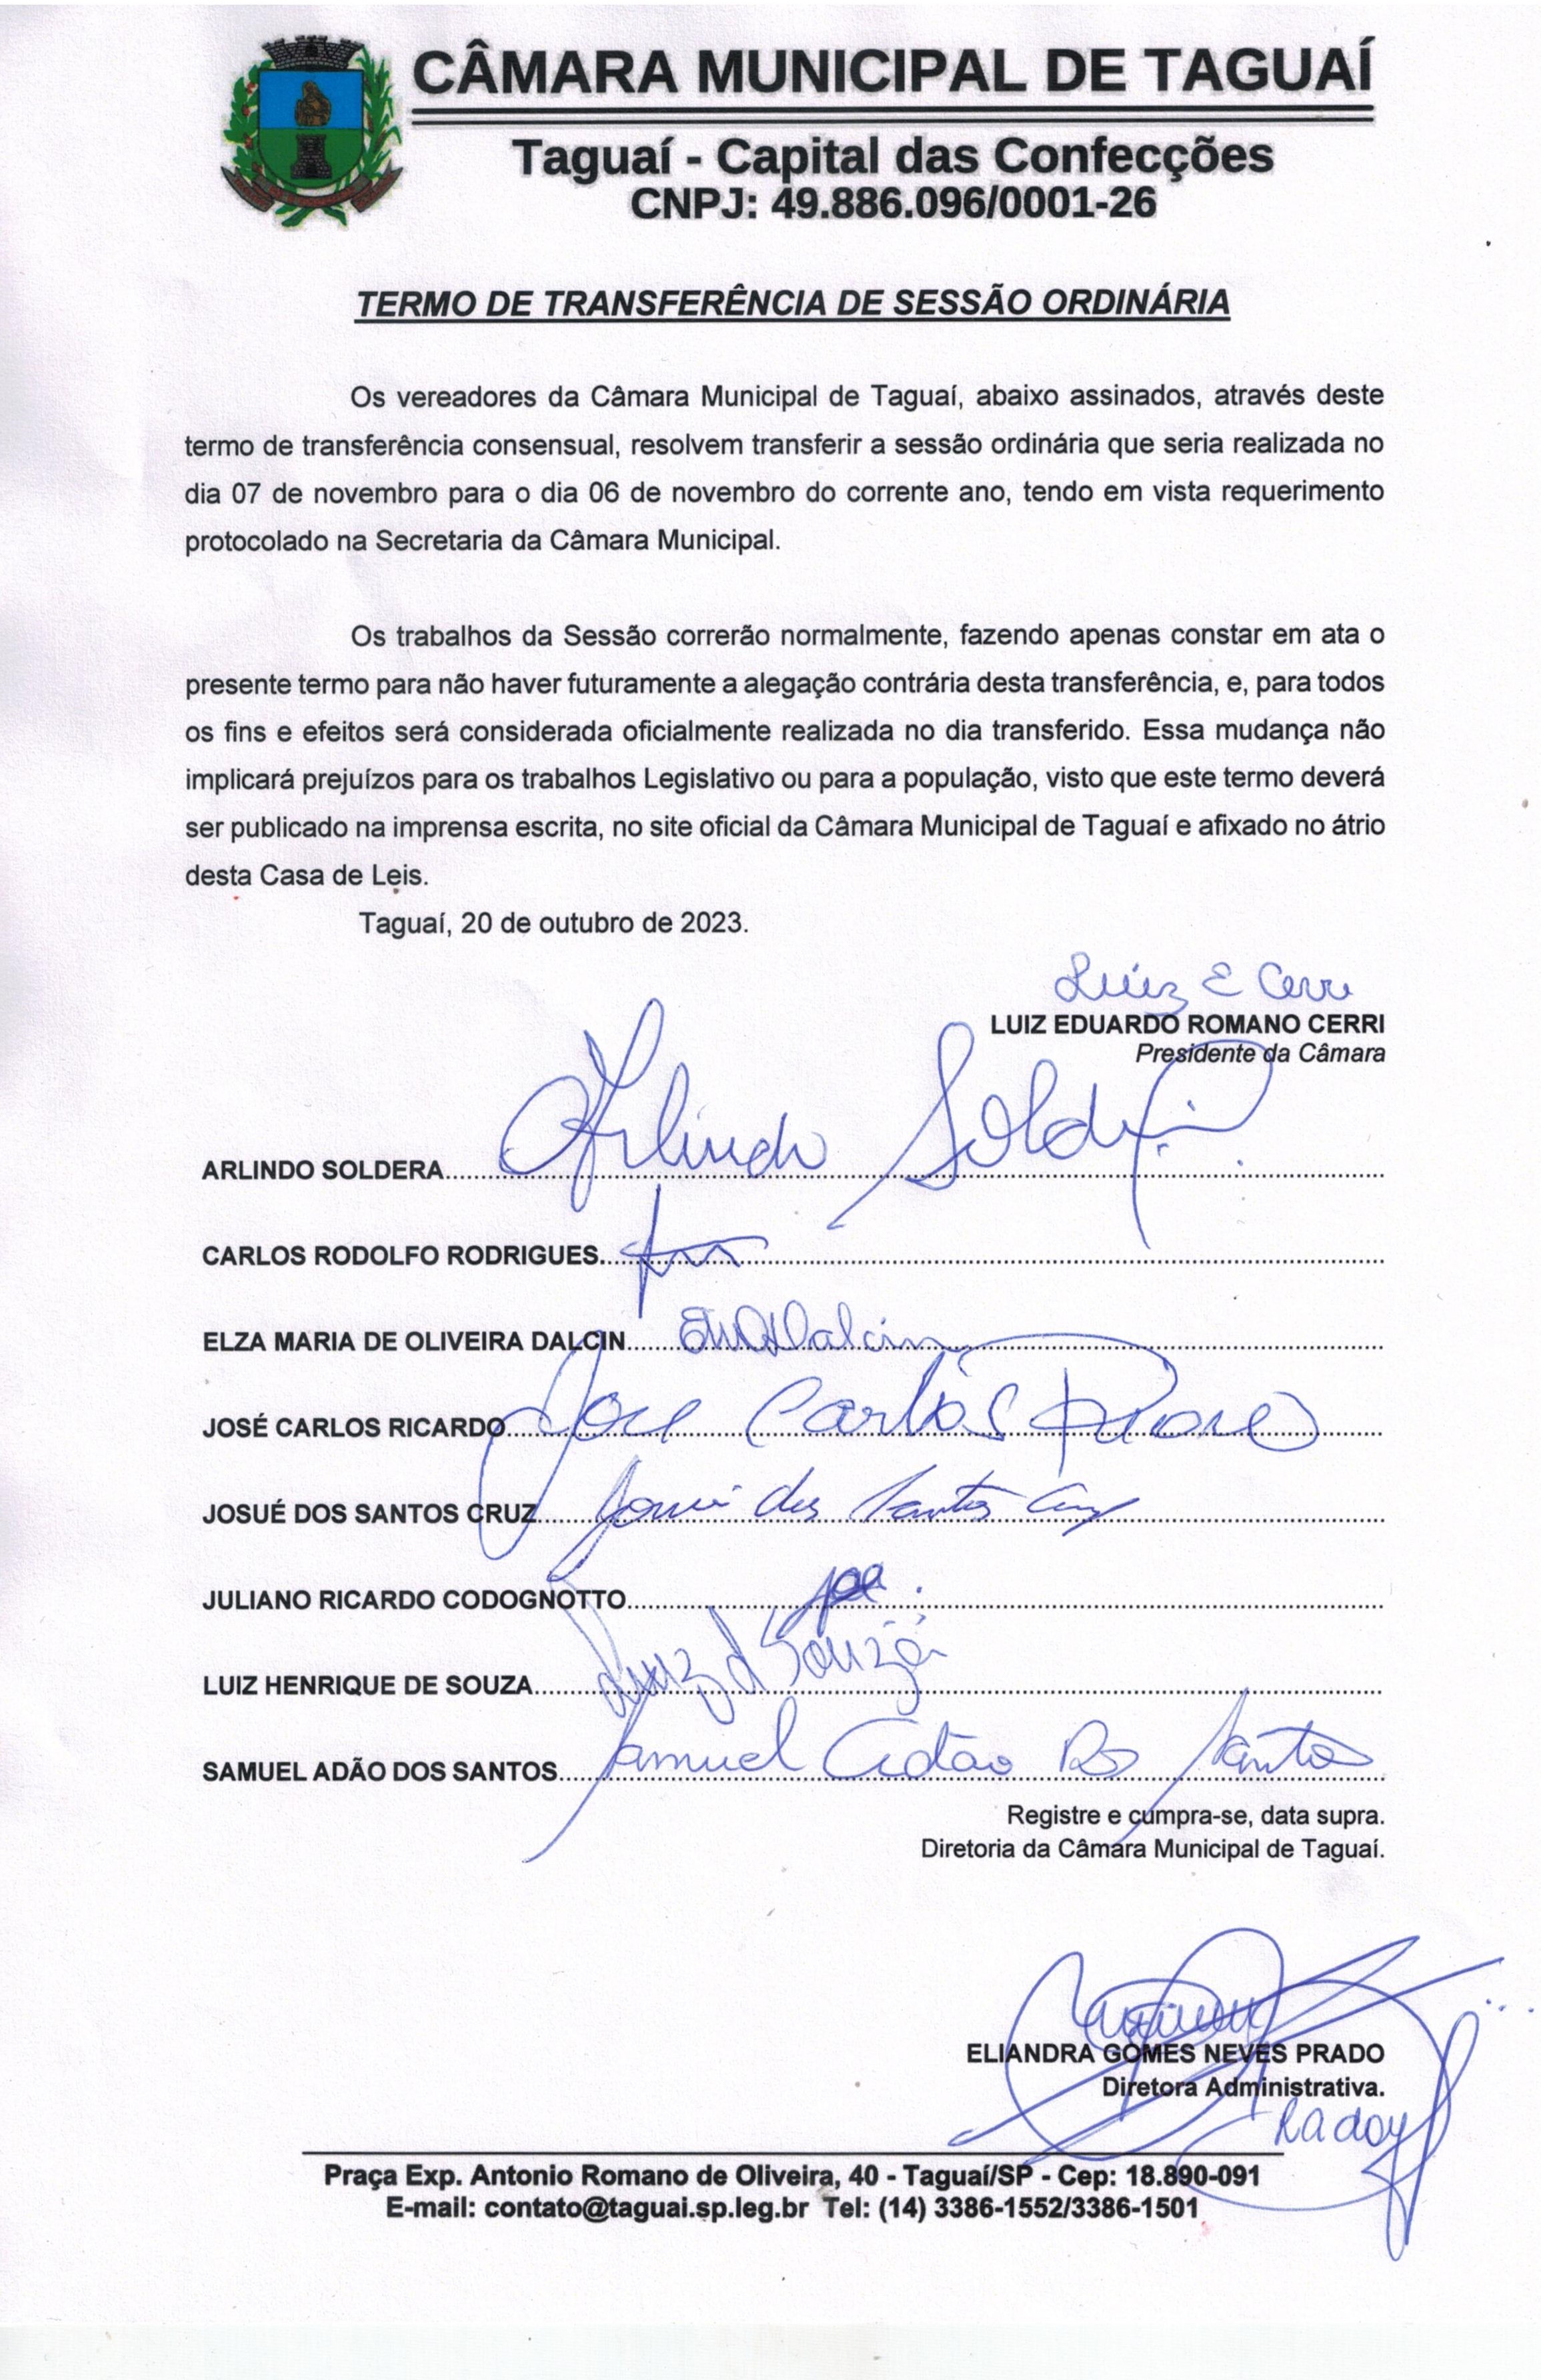 CÂMARA MUNICIPAL DE TAGUAÍ
Taguaí - Capital das Confecções
CNPJ: 49.886.096/0001-26
TERMO DE TRANSFERÊNCIA DE SESSÃO ORDINÁRIA
Os vereadores da Câmara Municipal de Taguaí, abaixo assinados, através deste
termo de transferência consensual, resolvem transferir a sessão ordinária que seria realizada no
dia 07 de novembro para o dia 06 de novembro do corrente ano, tendo em vista requerimento
protocolado na Secretaria da Câmara Municipal.
Os trabalhos da Sessão correrão normalmente, fazendo apenas constar em ata o
presente termo para não haver futuramente a alegação contrária desta transferência, e, para todos
os fins e efeitos será considerada oficialmente realizada no dia transferido. Essa mudança não
implicará prejuízos para os trabalhos Legislativo ou para a população, visto que este termo deverá
ser publicado na imprensa escrita, no site oficial da Câmara Municipal de Taguaí e afixado no átrio
desta Casa de Leis.
Taguaí, 20 de outubro de 2023.
Luiz E Cerri
LUIZ EDUARDO ROMANO CERRI
Presidente da Câmara
ARLINDO SOLDERA Arlindo Soldera
CARLOS RODOLFO RODRIGUES
ELZA MARIA DE OLIVEIRA DALCIN Dalcin
JOSÉ CARLOS RICARDO Jose Carlos
JOSUÉ DOS SANTOS CRUZ Josué dos Santos Cruz
JULIANO RICARDO CODOGNOTTO
LUIZ HENRIQUE DE SOUZA Luiz d Souza
SAMUEL ADÃO DOS SANTOS Samuel Adão dos Santos
Registre e cumpra-se, data supra.
Diretoria da Câmara Municipal de Taguaí.
ELIANDRA GOMES NEVES PRADO
Diretora Administrativa.
Praça Exp. Antonio Romano de Oliveira, 40 - Taguaí/SP - Cep: 18.890-091
E-mail: contato@taguai.sp.leg.br Tel: (14) 3386-1552/3386-1501